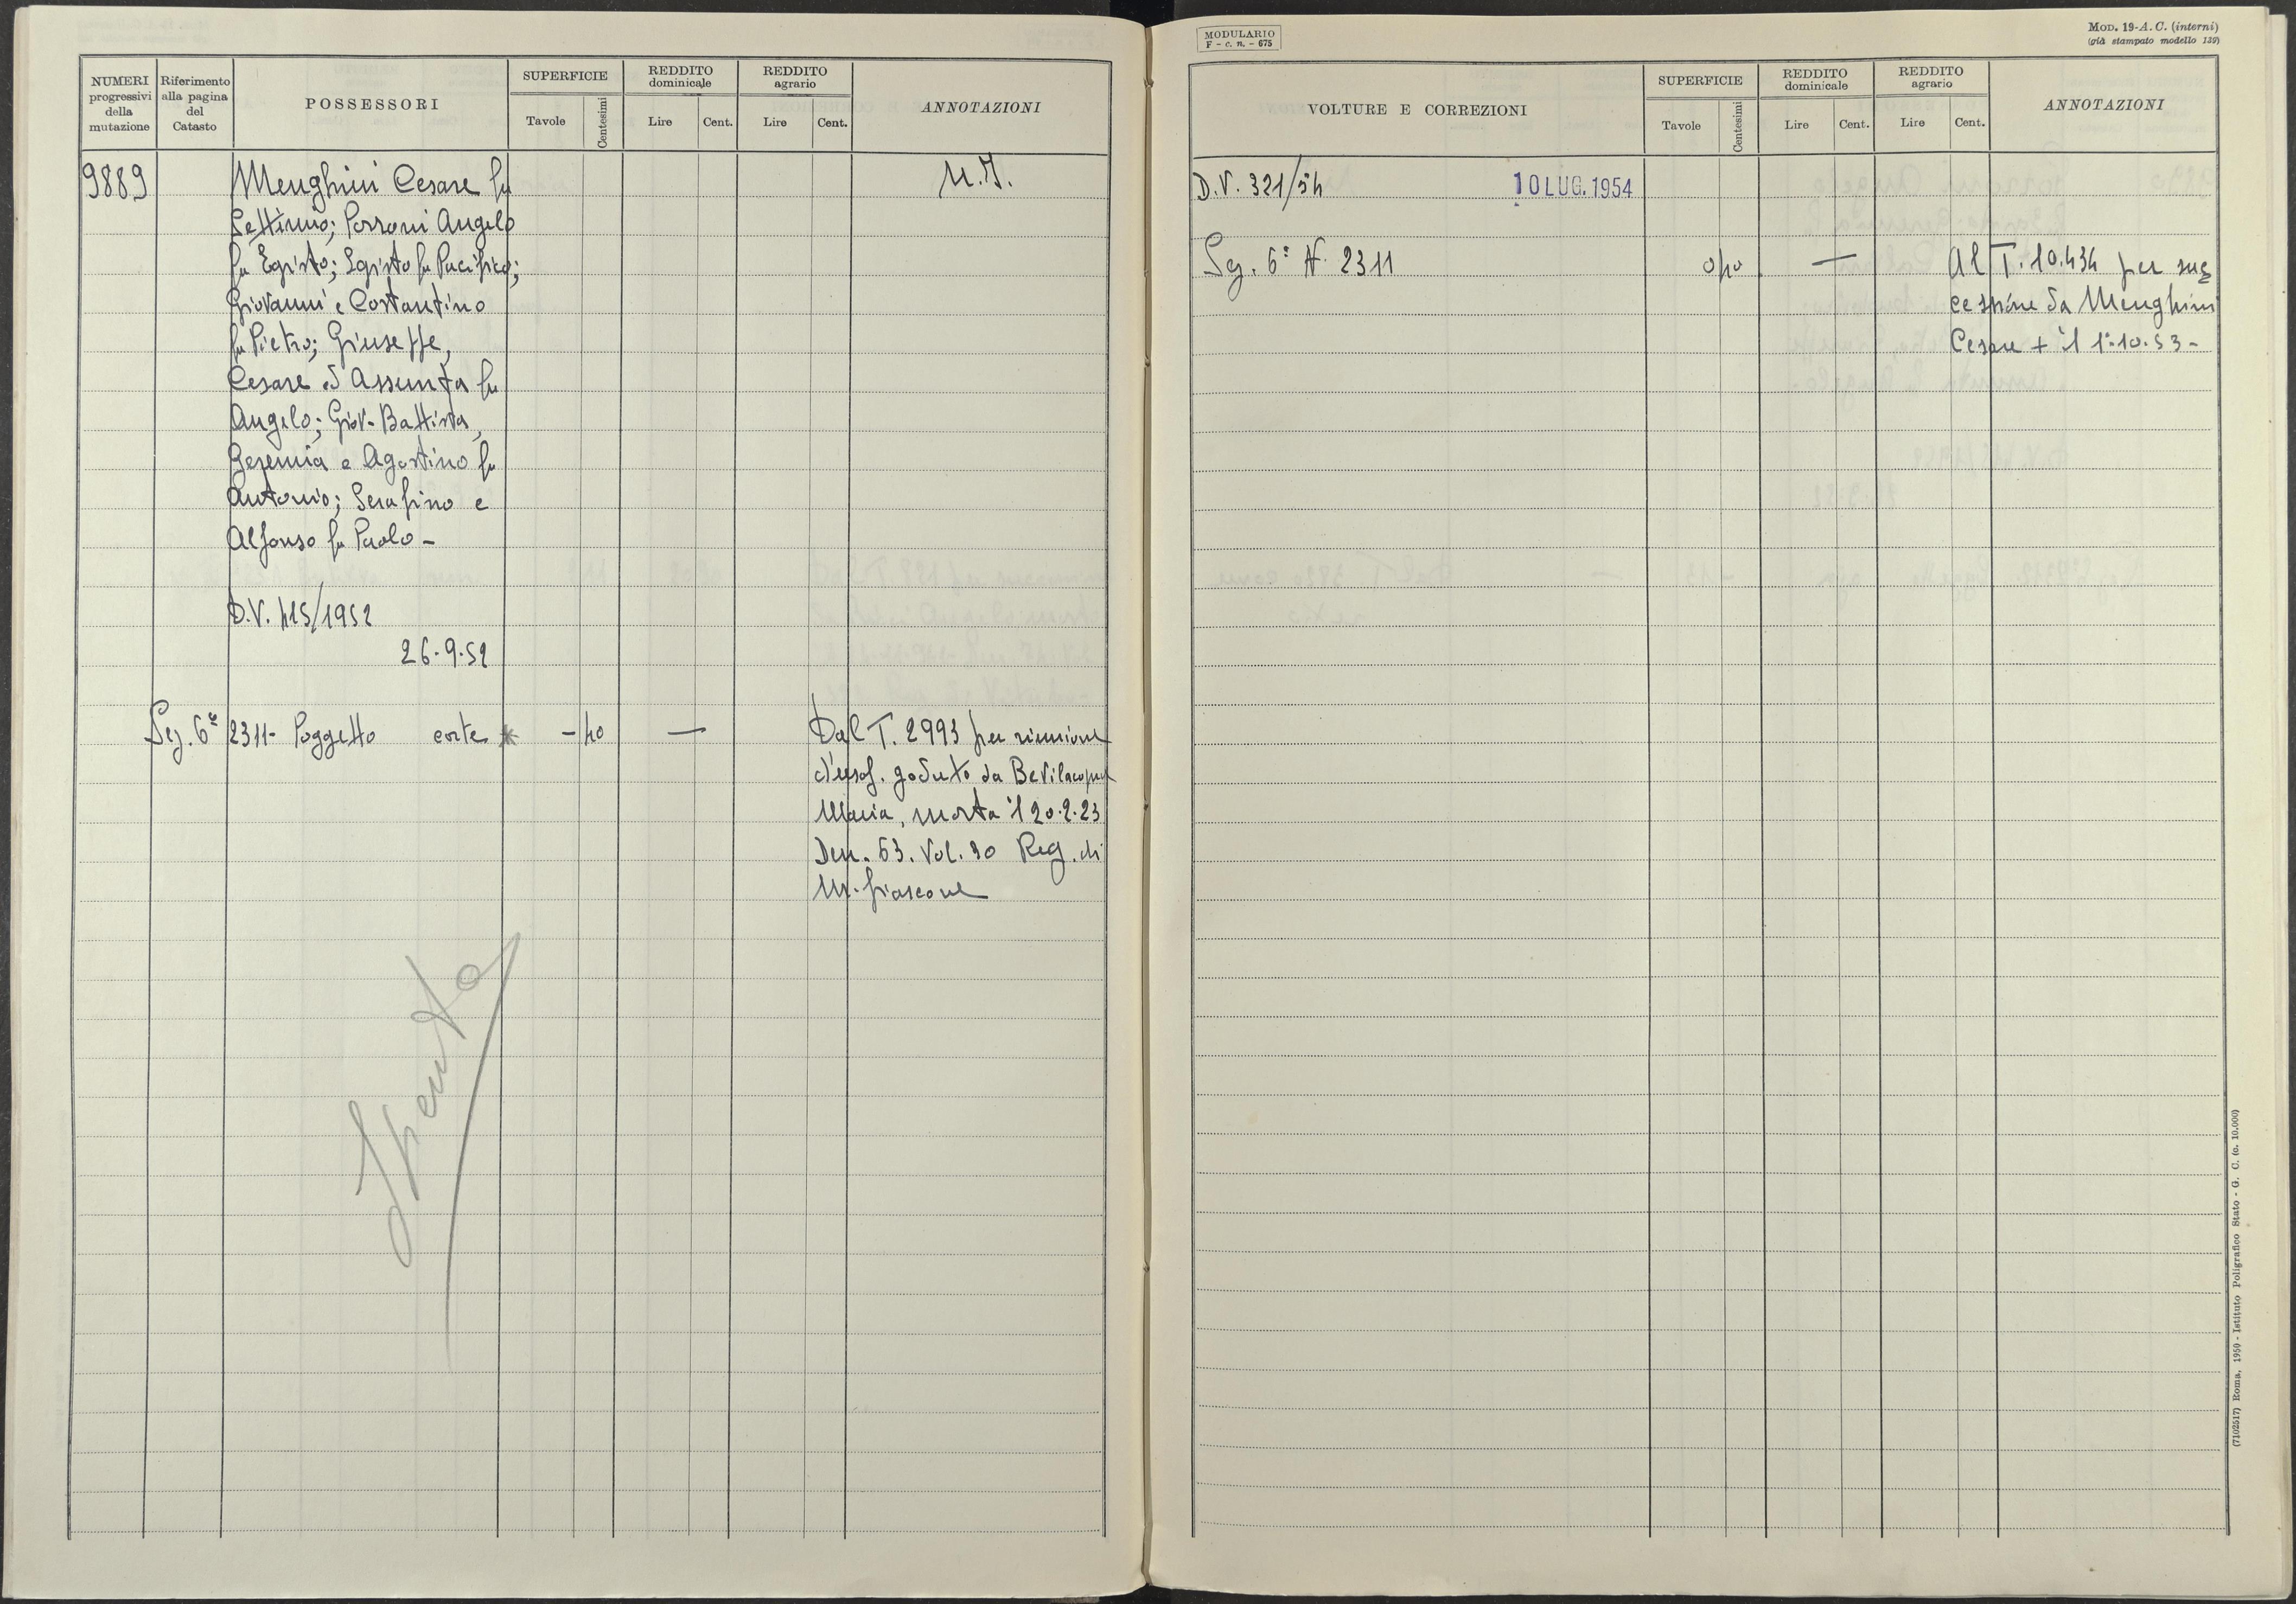 NUMERI progressivi della mutazione
Riferimento alla pagina del Catasto
POSSESSORI
SUPERFICIE
Tavole
Centesimi
REDDITO dominicale
Lire
Cent.
REDDITO agrario
Lire
Cent.
ANNOTAZIONI
9889 Menghini Cesare fu U.I.
Settimio; Porroni Angelo
fu Egisto; Egisto fu Pacifico;
Giovanni e Costantino
fu Pietro; Giuseppe,
Cesare ed Assunta fu
Angelo; Giov. Battista,
Geremia e Agostino fu
Antonio; Serafino e
Alfonso fu Paolo -
D.V. 415/1952
26.9.52
Sez. 6ª 2311- Poggetto corte - 40 — Dal T. 2993 per riunione
d'usuf. goduto da Bevilacqua
Maria, morta il 20.2.23
Den. 63. Vol. 30 Reg. di
M. fiascone
Spento
MODULARIO
F - c. n. - 675
MOD. 19-A. C. (interni)
(già stampato modello 139)
VOLTURE E CORREZIONI
SUPERFICIE
Tavole
Centesimi
REDDITO dominicale
Lire
Cent.
REDDITO agrario
Lire
Cent.
ANNOTAZIONI
D.V. 321/54 10 LUG. 1954
Sez. 6ª N. 2311 0 40 — Al T. 10.434 per suc
cessione da Menghini
Cesare + il 1°.10.53-
(7102517) Roma, 1950 - Istituto Poligrafico Stato - G. C. (c. 10.000)